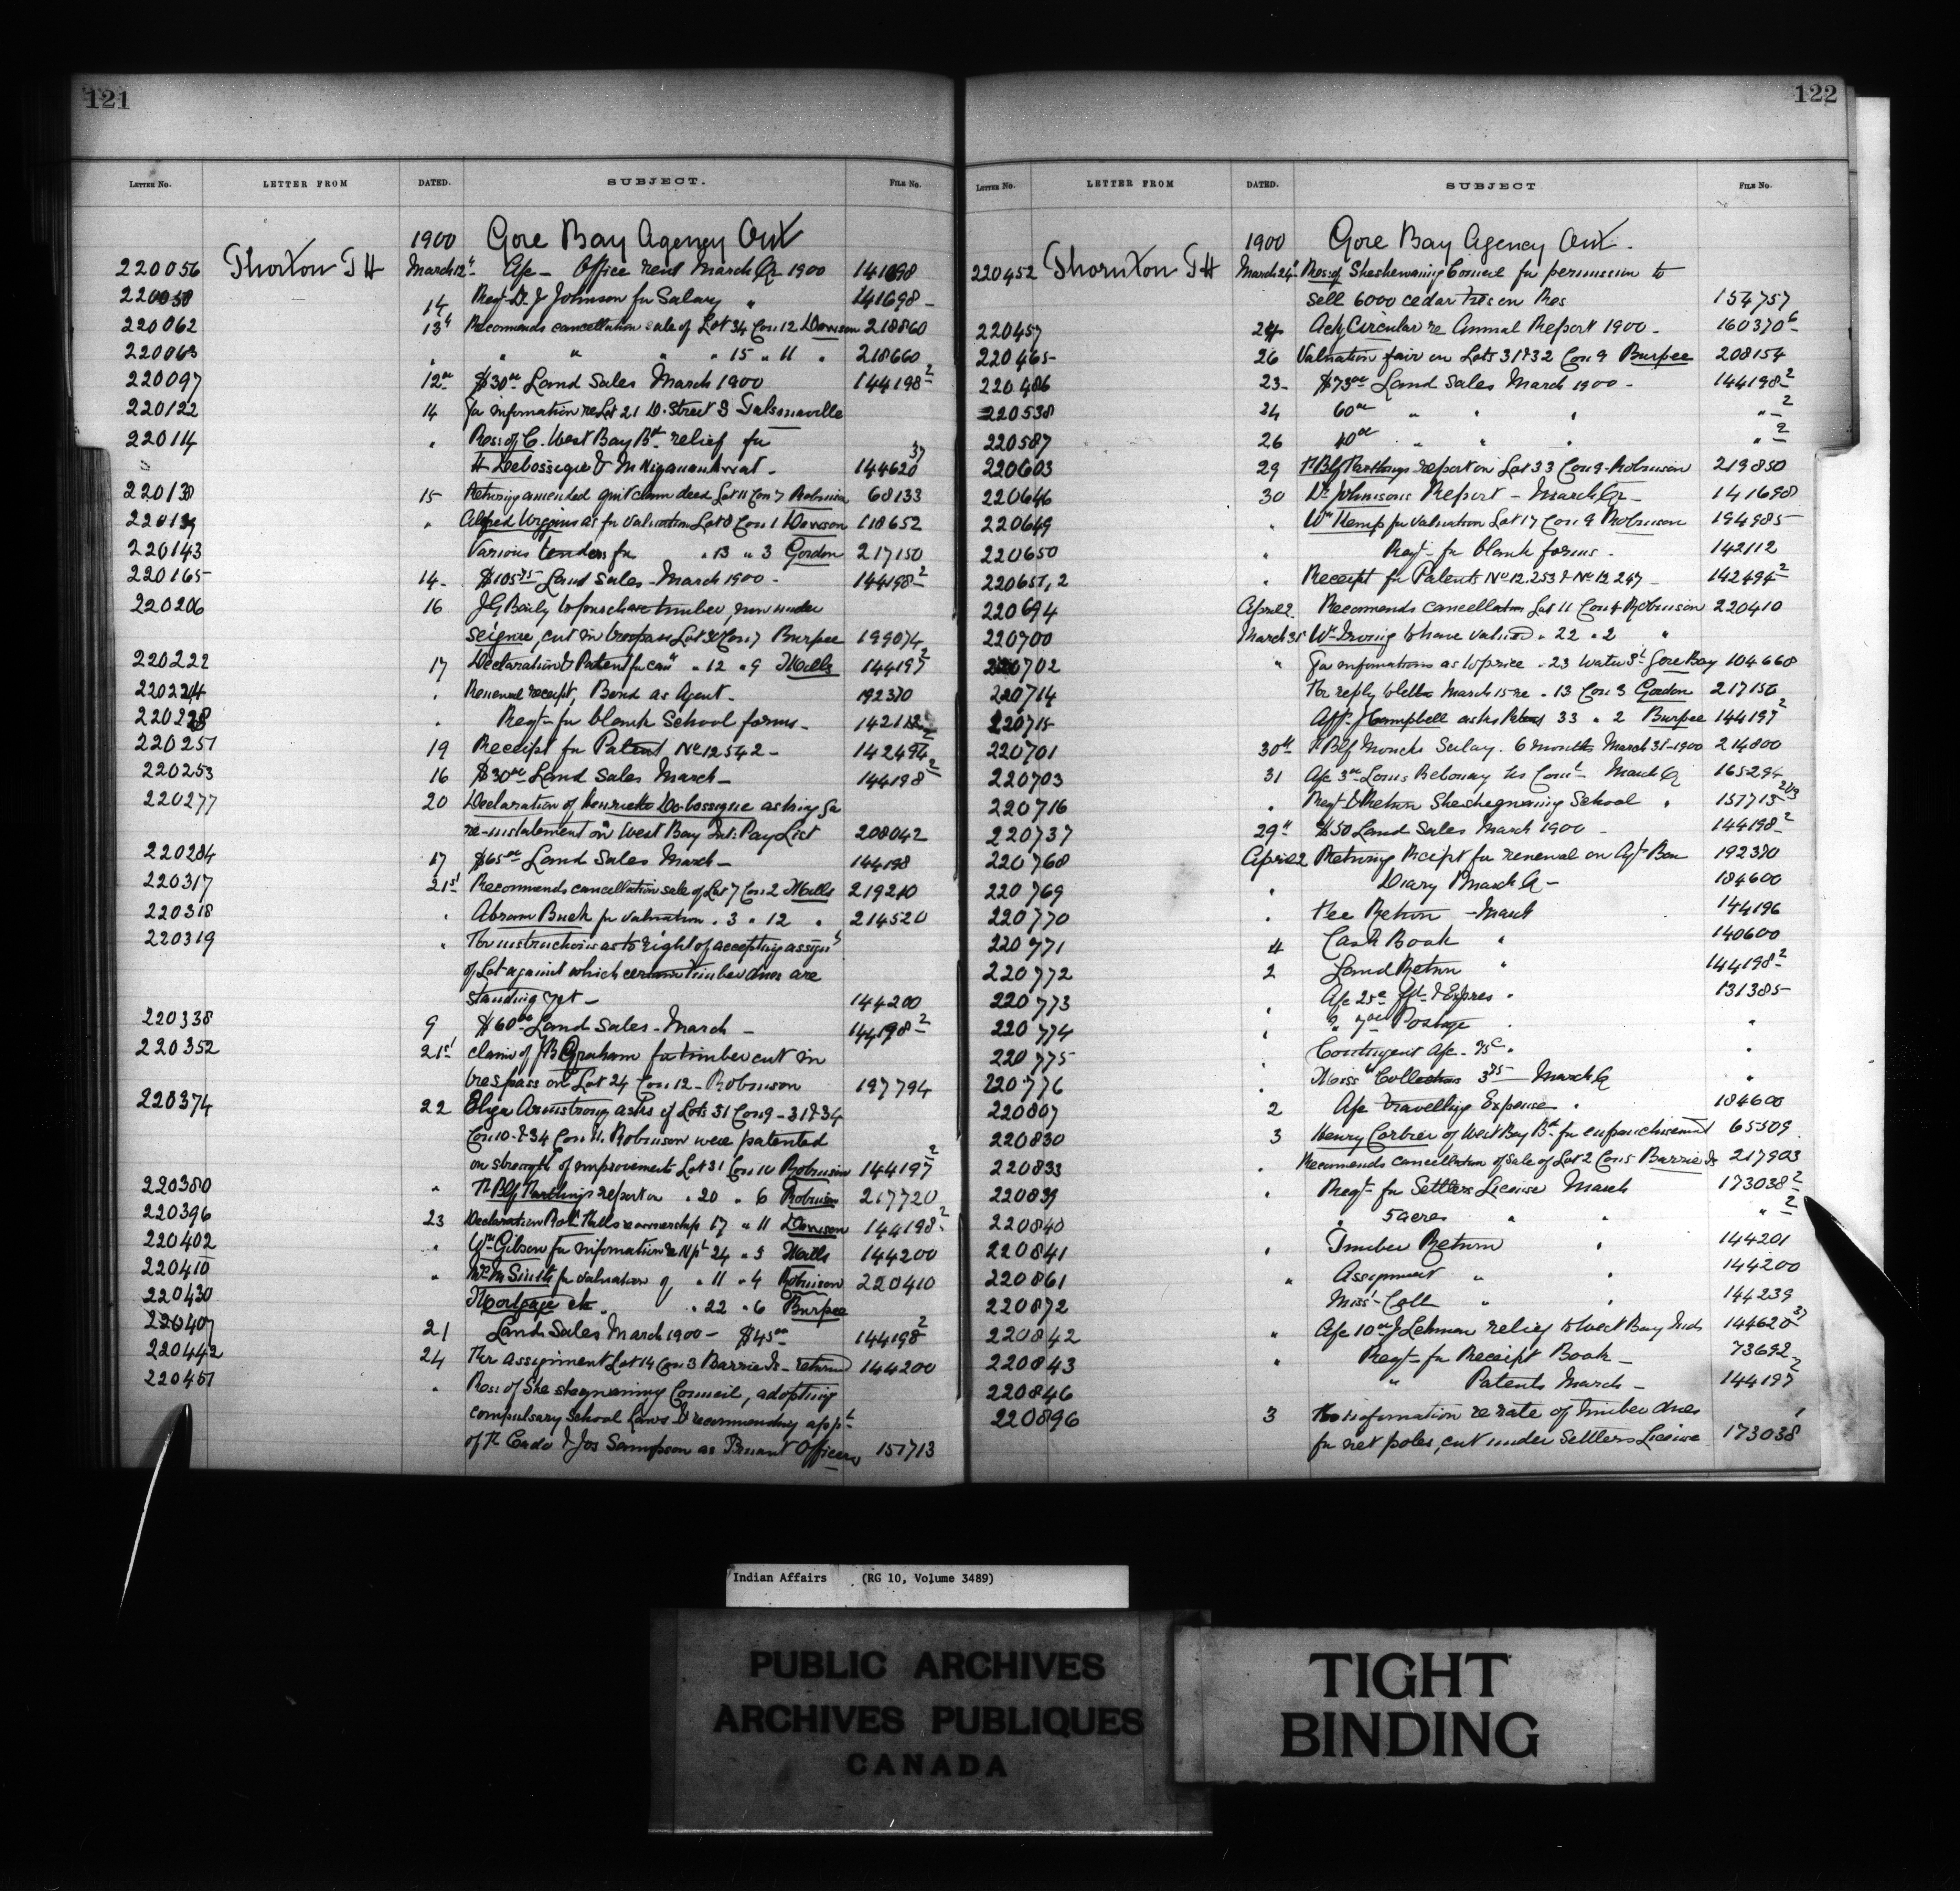 121
LETTER NO. LETTER FROM DATED. SUBJECT. FILE NO.
1900 Gore Bay Agency Ont
220056 Thorton T H March 12" A/c - Office rent March Qr 1900 141698
220058 14 Reqt Dr J Johnson for Salary " 141698
220062 13" Recomends cancellation sale of Lot 34 Con 12 Dawson 218860
220063 " " " " " 15 " 11 " 218660
220097 12th $30 00 Land Sales March 1900 144198 2
220122 14 For information re Lot 21 D. Street
22014 " Reso of C. West Bay Bd relief for
144620 37
220138 15 Returning amended quit claim deed Lot 11 Con 7 Robinson 68133
220139 " Alfred Wiggins as for valuation Lot 8 Con 1 Dawson 118652
220143 Various tenders for " 13 " 3 Gordon 217150
220165 14 $105 75 Land Sales - March 1900 - 144198 2
220206 16 J G Baily to purchase timber, now under
seizure, cut in trespass Lot 30 Con 7 Burpee 199074
220222 17 Declaration & Patent for " 12 " 9 Mills 144197 2
220224 " Renewal receipt, Bond as Agent - 192370
220228 " Reqt for blank School forms - 142112
220251 19 Receipt for Patent No 12542 - 142494 2
220253 16 $30 00 Land Sales March - 144198 2
220277 20 Declaration of Henrietta De-bossigue asking for
re-instatement on West Bay Int. Pay List 208042
220284 17 $65 00 Land Sales March - 144198
220317 21st Recommends cancellation sale of Lot 7 Con 2 Mills 219210
220318 " Abram Buck for valuation " 3 " 12 " 214520
220319 " For instructions as to right of accepting assigt
of Lot against which certain timber dues are
standing yet - 144200
220338 9 $60 00 Land Sales - March - 144198 2
220352 21st claim of J B Graham for timber cut in
trespass on Lot 24 Con 12 - Robinson 197794
220374 22 Eliza Armstrong asks if Lots 31 Con 9 - 31 & 34
Con 10 & 34 Con 11. Robinson were patented
on strength of improvements Lot 31 Con 10 Robinson 144197 2
220380 " report on " 20 " 6 Robinson 217720
220396 23 Declaration Robt Halls ownership 17 " 11 Dawson 144198 2
220402 " Wm Gibson for information re N pt 24 " 3 Mills 144200
220410 " Wm M Smith for valuation of " 11 " 4 Robinson 220410
220430 Mortgage etc. " 22 " 6 Burpee
220407 21 Land Sales March 1900 - $45 00 144198 2
220442 24 For Assignment Lot 14 Con 3 Barrie Is - returned 144200
220451 " Reso of Sheshegwaning Council, adopting
compulsary School Laws & recommending appt
of & Jos Sampson as Truant Officers 151713
122
LETTER NO. LETTER FROM DATED. SUBJECT FILE NO.
1900 Gore Bay Agency Ont.
220452 Thornton T H March 24" Res. of Sheshewaning Council for permission to
sell 6000 cedar ties on Res 154757
220457 24 Ack Circular re Annual Report 1900 - 160370 6
220465 26 Valuation fair on Lots 31 & 32 Con 9 Burpee 208154
220486 23 - $73 00 Land Sales March 1900 - 144198 2
220538 24 60 00 " " " " 2
220587 26 40 00 " " " " 2
220603 29 report on Lot 33 Con 9 - Robinson 219850
220646 30 Dr Johnsons Report - March Qr - 141698
220649 " Wm Kemp for valuation Lot 17 Con 9 Robinson 194985
220650 " Reqt - for blank forms - 142112
220651, 2 " Receipt for Patents No 12,253 & No 12 247 - 142494 2
220694 April 2 Recomends cancellation Lot 11 Con 4 Robinson 220410
220700 March 31 Wm Irving to have valued " 22 " 2 "
220702 " For informations as to price " 23 Water St Gore Bay 104668
220714 For reply to letter March 15 re " 13 Con 3 Gordon 217150
220715 Campbell asks Patent 33 " 2 Burpee 144197 2
220701 30th Salary - 6 months March 31 - 1900 214800
220703 31 A/c 3 00 Louis March Qr 165294
220716 " Reqt & Return Sheshegwaning School " 151713
220737 29" $50 Land Sales March 1900 - 144198 2
220768 April 2 Returning Receipt for renewal on Agt Bon 192370
220769 " Diary March Qr - 184600
220770 " Fee Return - March 144196
220771 4 Cash Book " 140600
220772 2 Land Return " 144198 2
220773 " A/c 25c Fgt & Expres " 131385
220774 " " 7 00 Postage " "
220775 " Contingent A/c - 75c " "
220776 " Miss. Collections 3 75 - March Qr "
220807 2 A/c travelling Expense " 184600
220830 3 Henry Corbier of West Bay Bd for enfranchisement 65509
220833 " Recomends cancellation of sale of Lot 2 Con 5 Barrie Is 217903
220839 " Reqt - for Settlers License March 173038 2
220840 " 5 acres " " " 2
220841 " Timber Return " 144201
220861 " Assignment " " 144200
220872 Miss - Coll " " 144239
220842 " A/c 10 00 J Lehman relief to West Bay Inds 144620 37
220843 " Reqt - for Receipt Book - 73692
220846 " Patents March - 144197 2
220896 3 For information re rate of timber dues
for net poles, cut under Settlers License 173038 1
Indian Affairs (RG 10, Volume 3489)
PUBLIC ARCHIVES
ARCHIVES PUBLIQUES
CANADA
TIGHT
BINDING